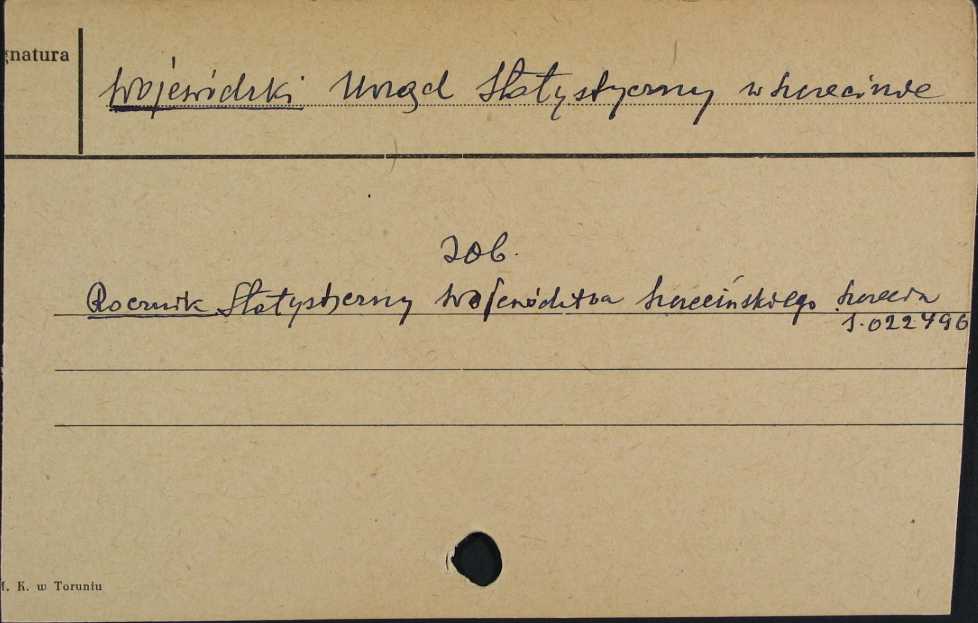 gnatura
Wojewódzki Urząd Statystyczny w Szczecinie
Zob.
Rocznik Statystyczny Województwa Szczecińskiego Szczecin
S.022496
M. K. w Toruniu